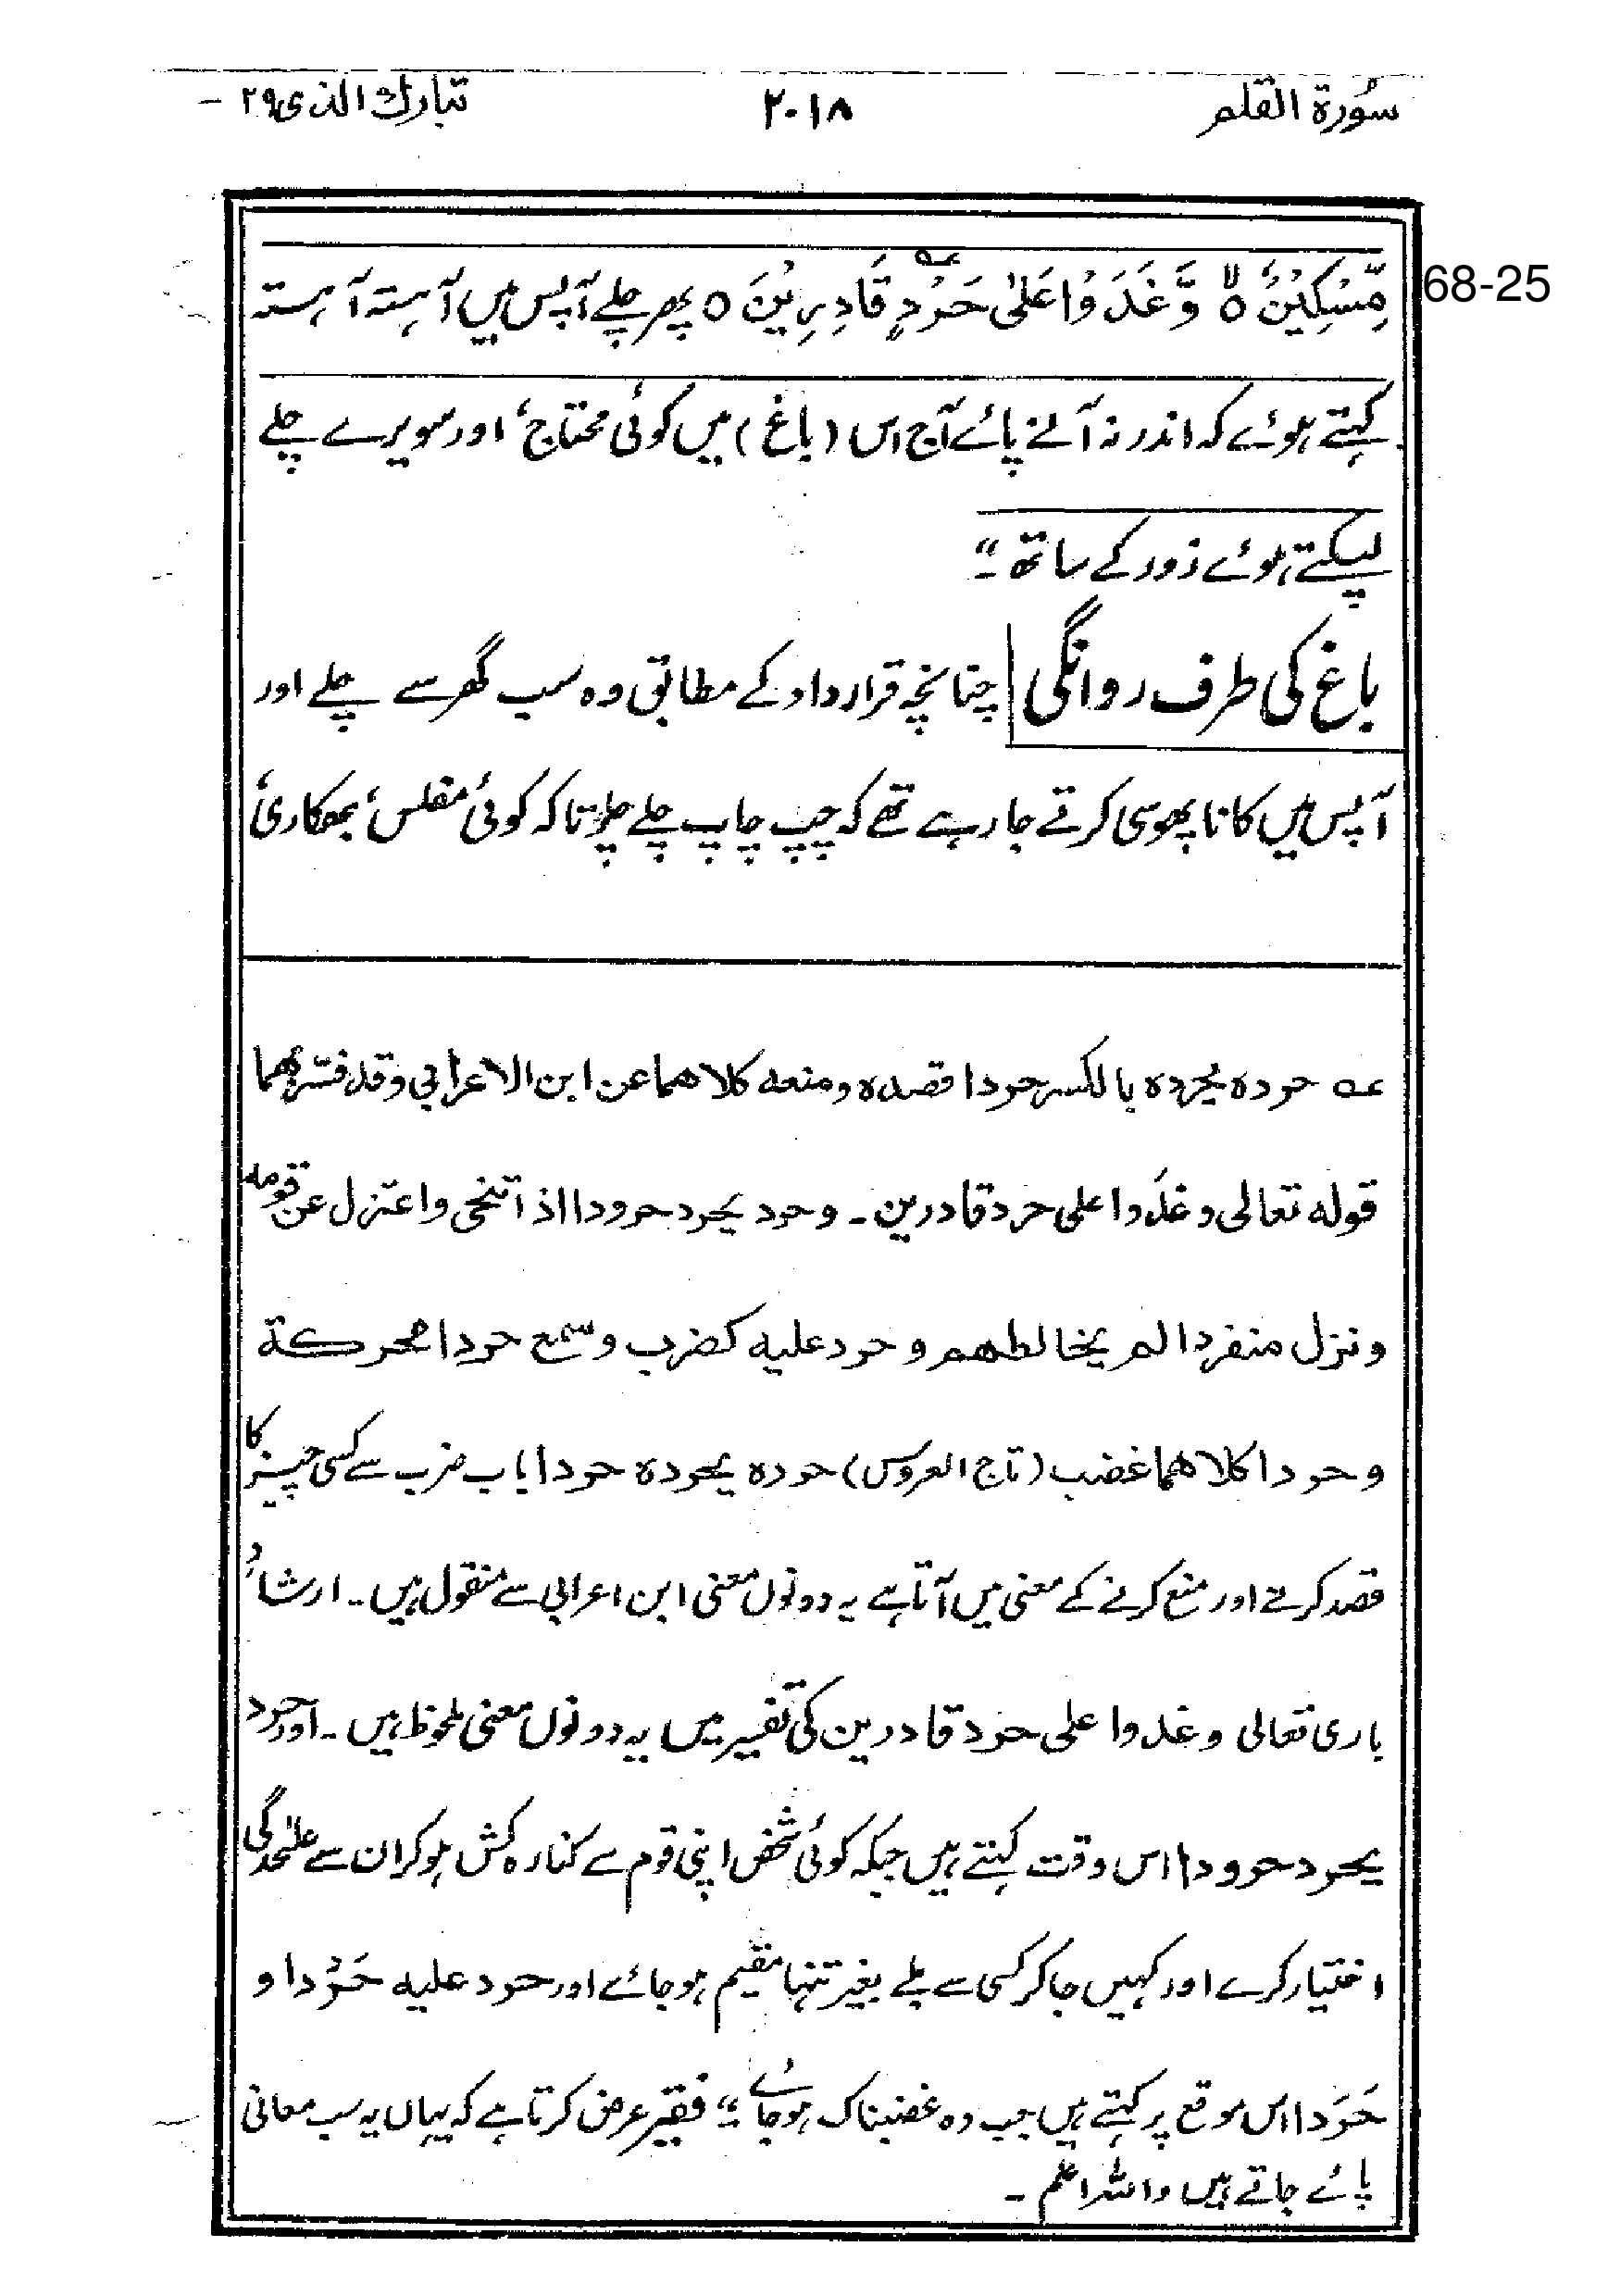 سُورة القلم ۲۰۱۸ تبارك الذی ۲۹ –
مِّسْكِيْنٌ ۙ وَّغَدَوْا عَلٰى حَرْدٍ قَادِرِيْنَ ○ پھر چلے آپس میں آہستہ آہستہ
68-25
کہتے ہوئے کہ اندر نہ آنے پائے آج اس (باغ) میں کوئی محتاج، اور سویرے چلے
لپکتے ہوئے زور کے ساتھ۔"
باغ کی طرف روانگی چنانچہ قرارداد کے مطابق وہ سب گھر سے چلے اور
آپس میں کانا پھوسی کرتے جا رہے تھے کہ چپ چاپ چلے چلو تا کہ کوئی مفلس، بھکاری،
عہ حرده يحرده بالكسر حردا قصده ومنعه كلاهما عن ابن الاعرابي وقد فسّر بهما
قوله تعالى وغدَوا على حرد قادرين ۔ وحرد يحرد حرودا اذا تنحى واعتزل عن قومه
ونزل منفردا لم يخالطهم وحرد عليه كضرب وسمع حردا محركة
وحردا كلاهما غضب (تاج العروس) حرده يحرده حردا باب ضرب سے کسی چیز کا
قصد کرتے اور منع کرنے کے معنی میں آتا ہے یہ دونوں معنی ابن اعرابی سے منقول ہیں۔ ارشادِ
باری تعالی وغدوا على حرد قادرين کی تفسیر میں یہ دونوں معنی ملحوظ ہیں۔ اور حرد
يحرد حرودا اس وقت کہتے ہیں جبکہ کوئی شخص اپنی قوم سے کنارہ کش ہو کر ان سے علٰحدگی
اختیار کرے اور کہیں جا کر کسی سے ملے بغیر تنہا مقیم ہو جائے اور حرد عليه حَرْدا و
حَرَدا اس موقع پر کہتے ہیں جب وہ غضبناک ہو جائے" فقیر عرض کرتا ہے کہ یہاں یہ سب معانی
پائے جاتے ہیں واللہ اعلم۔